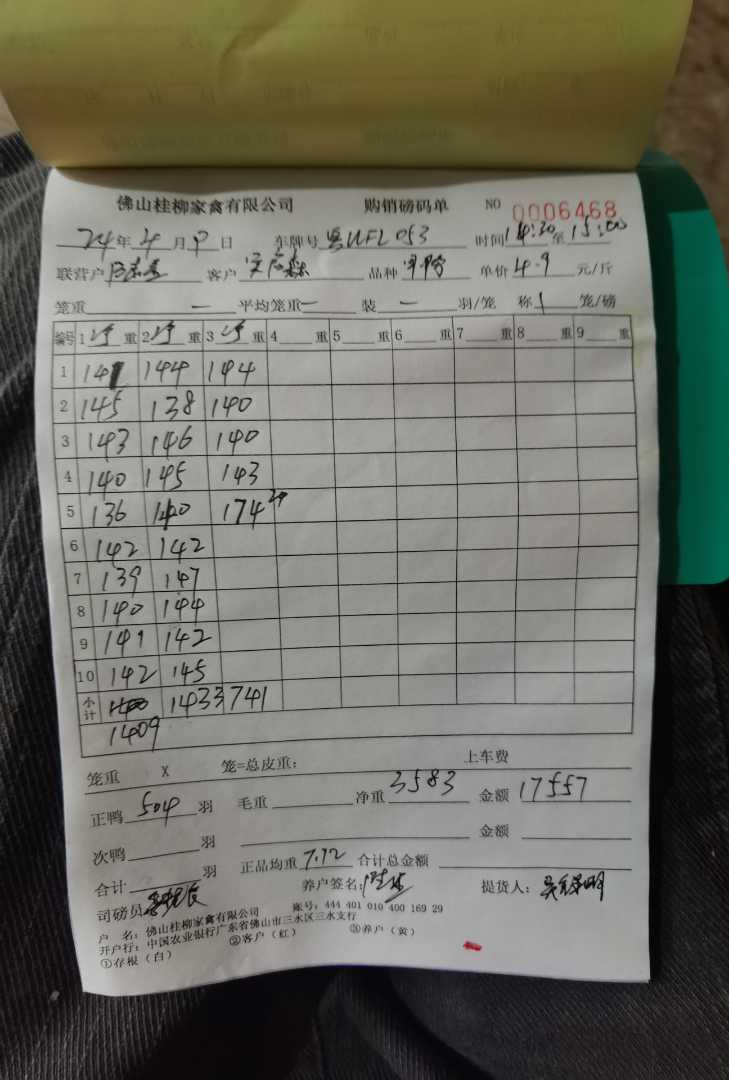 佛山桂柳家禽有限公司 购销磅码单 NO 0006468
24年4月9日 车牌号 粤UFL053 时间14:30至15:00
联营户 客户 品种 单价4.9元/斤
笼重 一 平均笼重 一 装 一 羽/笼 称 1 笼/磅
编号 1净重 2净重 3净重 4 重 5 重 6 重 7 重 8 重 9 重
1 141 144 144
2 145 138 140
3 143 146 140
4 140 145 143
5 136 140 174
6 142 142
7 139 147
8 140 144
9 141 142
10 142 145
小计 1433 741
1409
笼重 X 笼=总皮重: 上车费
正鸭 504 羽 毛重 净重 3583 金额 17557
次鸭 羽 金额
合计 羽 正品均重 7.12 合计总金额
司磅员 养户签名: 提货人:
户 名: 佛山桂柳家禽有限公司 账号: 444 401 010 400 169 29
开户行: 中国农业银行广东省佛山市三水区三水支行
①存根（白） ②客户（红） ③养户（黄）